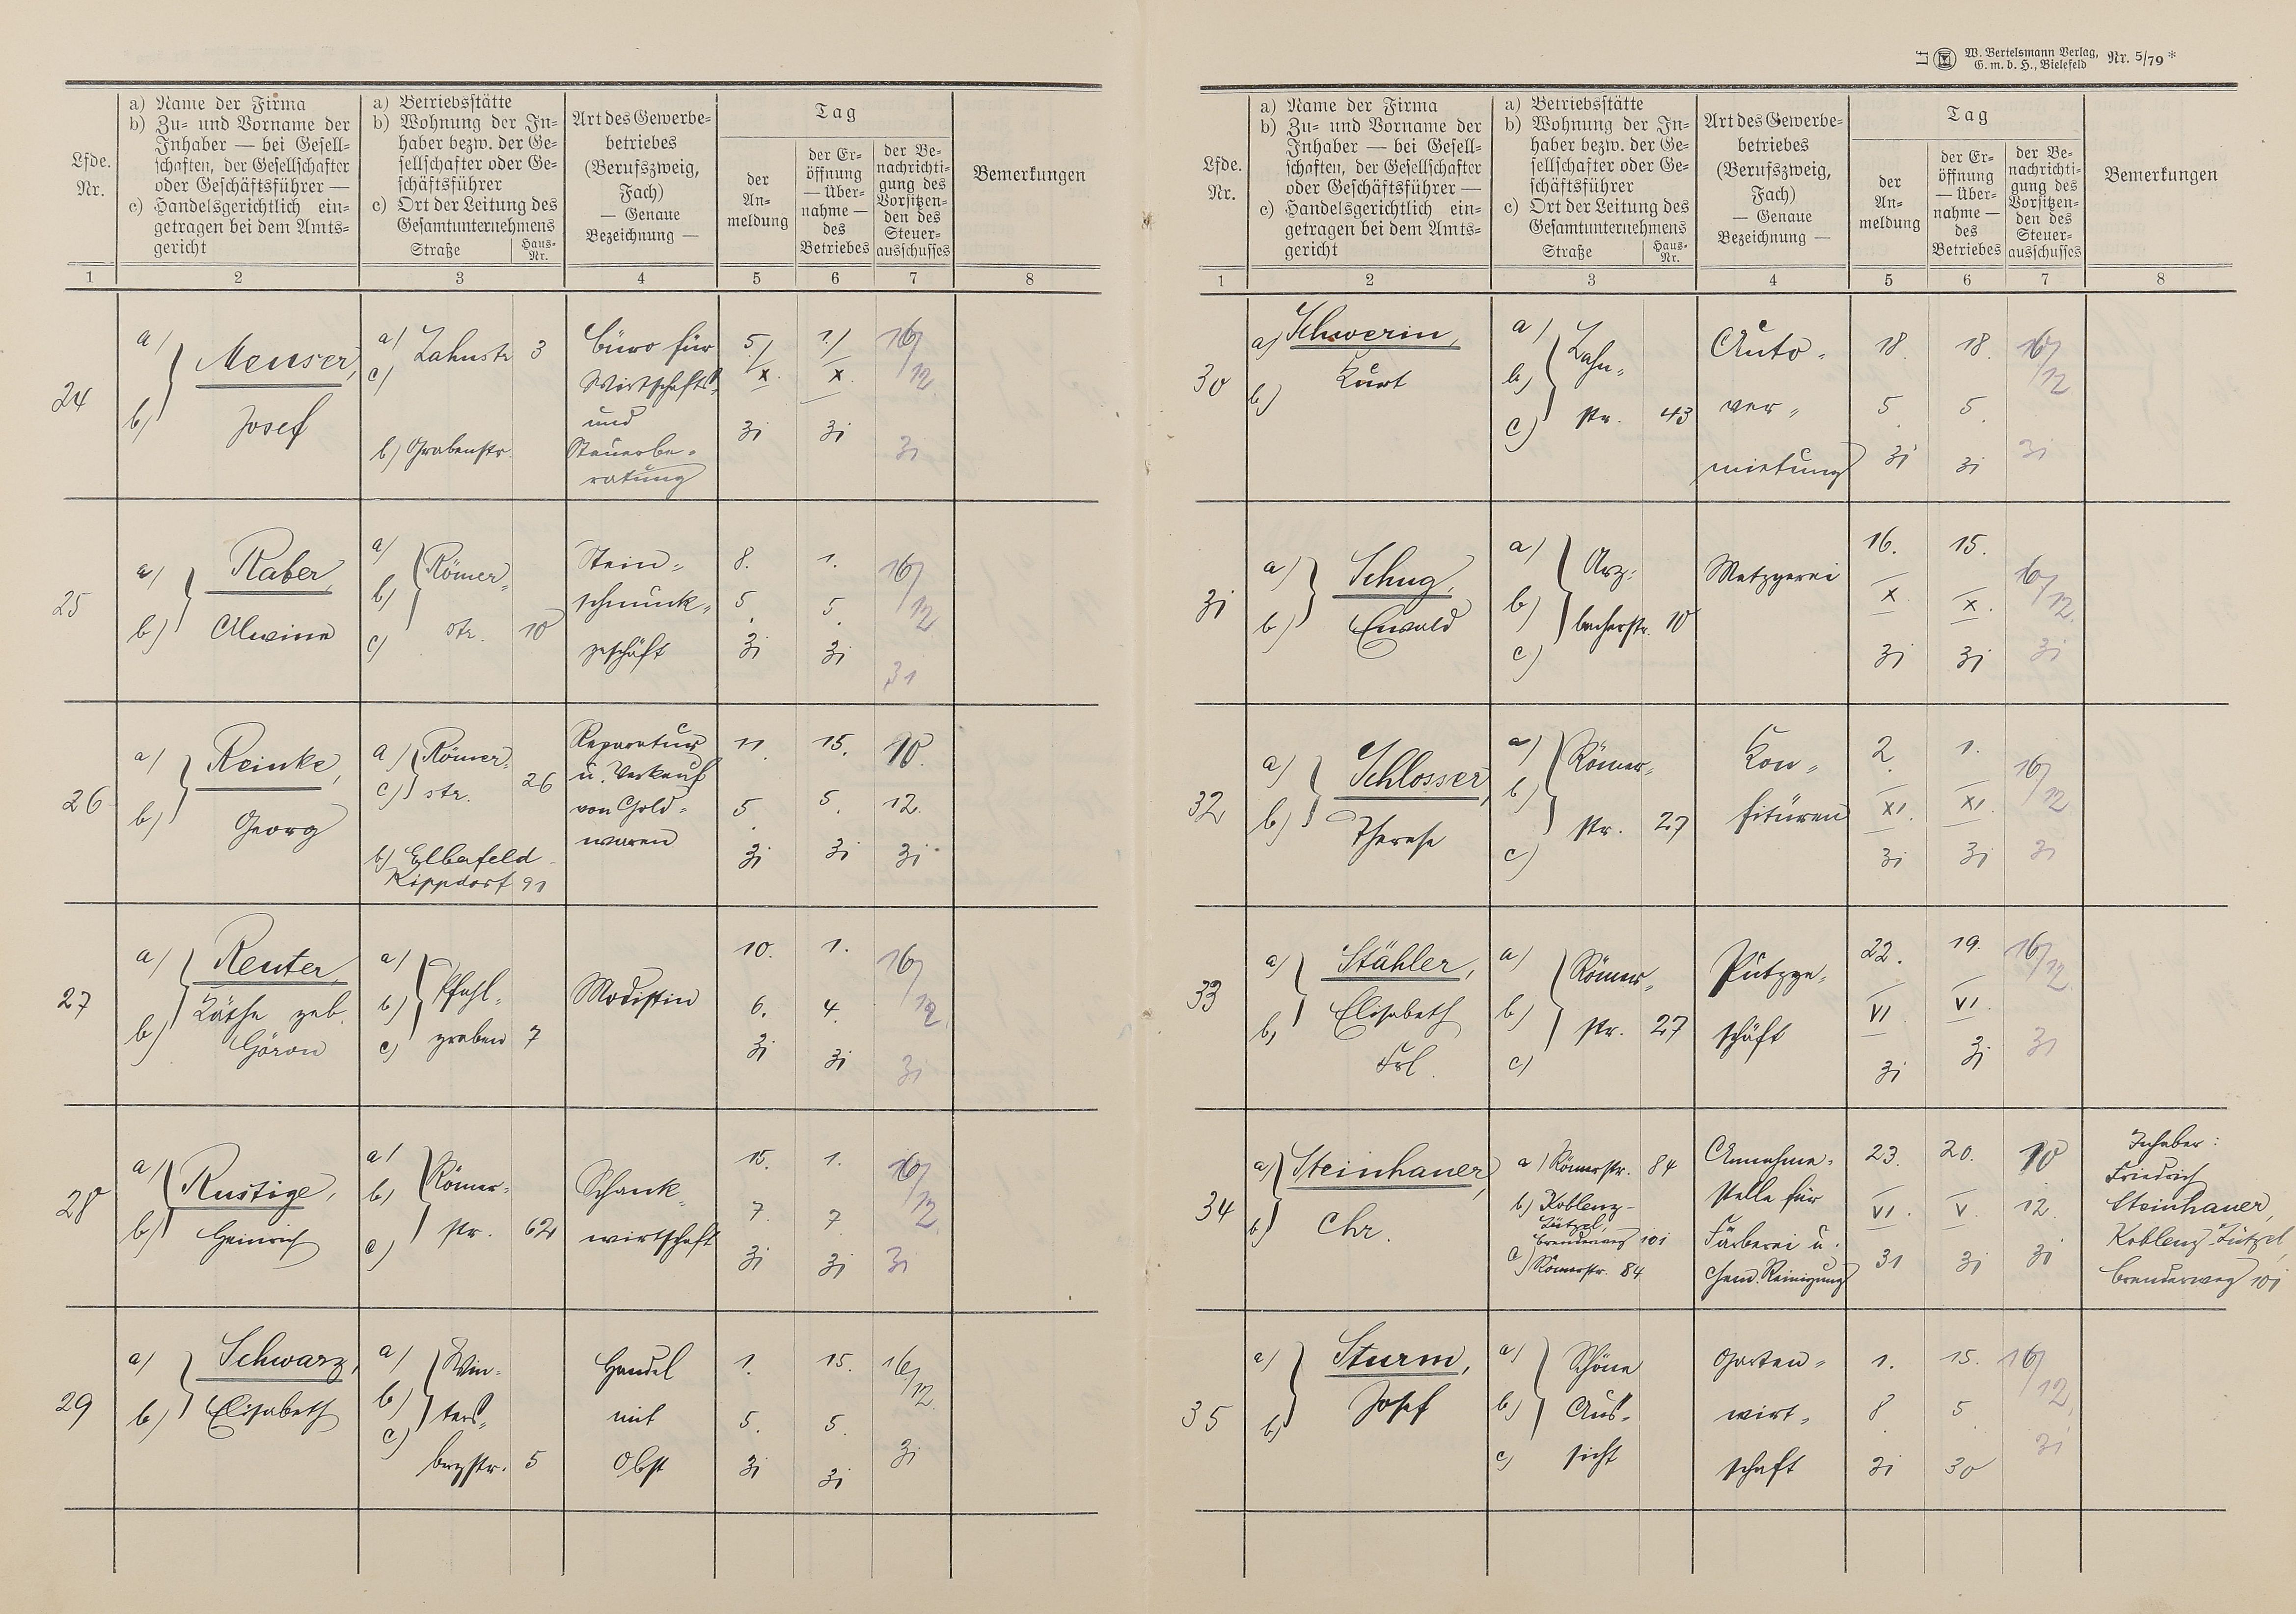 Lfde. Nr.
a) Name der Firma
b) Zu- und Vorname der
Inhaber — bei Gesell-
schaften, der Gesellschafter
oder Geschäftsführer —
c) Handelsgerichtlich ein-
getragen bei dem Amts-
gericht
a) Betriebsstätte
b) Wohnung der In-
haber bezw. der Ge-
sellschafter oder Ge-
schäftsführer
c) Ort der Leitung des
Gesamtunternehmens
Straße
Haus-
Nr.
Art des Gewerbe-
betriebes
(Berufszweig,
Fach)
— Genaue
Bezeichnung —
Tag
der
An-
meldung
der Er-
öffnung
— Über-
nahme —
des
Betriebes
der Be-
nachrichti-
gung des
Vorsitzen-
den des
Steuer-
ausschusses
Bemerkungen
1 2 3 4 5 6 7 8
24
a)
b)
Meuser,
Josef
a)
c)
Lahnstr 3
b) Grabenstr.
Büro für
Wirtschafts-
und
Steuerbe-
ratung
5./X. 31
1./X. 31
16/12. 31
25
a)
b)
Raber,
Alwine
a)
b)
c)
Römer-
str. 10
Stein-
schmuck-
geschäft
8. 5. 31
1. 5. 31
16/12 31
26
a)
b)
Reinke,
Georg
a)
c)
Römer-
str. 26
b) Elberfeld
Kippdorf 91
Reparatur
u. Verkauf
von Gold-
waren
11. 5. 31
15. 5. 31
10. 12. 31.
27
a)
b)
Reuter,
Käthe geb.
a)
b)
c)
Pfahl-
graben 7
Modistin
10. 6. 31
1. 4. 31
16/12. 31
28
a)
b)
Rustige,
Heinrich
a)
b)
c)
Römer-
str. 62
Schank-
wirtschaft
15. 7. 31
1. 7. 31
16/12. 31
29
a)
b)
Schwarz,
Elisabeth
a)
b)
c)
Win-
ters-
bergstr. 5
Handel
mit
Obst
1. 5. 31
15. 5. 31
16/12. 31
W. Bertelsmann Verlag,
G. m. b. H., Bielefeld
Nr. 5/79*
Lfde.
Nr.
a) Name der Firma
b) Zu- und Vorname der
Inhaber — bei Gesell-
schaften, der Gesellschafter
oder Geschäftsführer —
c) Handelsgerichtlich ein-
getragen bei dem Amts-
gericht
a) Betriebsstätte
b) Wohnung der In-
haber bezw. der Ge-
sellschafter oder Ge-
schäftsführer
c) Ort der Leitung des
Gesamtunternehmens
Straße
Haus-
Nr.
Art des Gewerbe-
betriebes
(Berufszweig,
Fach)
— Genaue
Bezeichnung —
Tag
der
An-
meldung
der Er-
öffnung
— Über-
nahme —
des
Betriebes
der Be-
nachrichti-
gung des
Vorsitzen-
den des
Steuer-
ausschusses
Bemerkungen
1 2 3 4 5 6 7 8
30
a)
b)
Schwerin,
Kurt
a)
b)
c)
Lahn-
str. 43
Auto-
ver-
mietung
18. 5. 31
18. 5. 31
16/12 31
31
a)
b)
Schug,
Ewald
a)
b)
c)
Arz-
bacherstr. 10
Metzgerei
16. X. 31
15. X. 31
16/12. 31
32
a)
b)
Schlosser,
Therese
a)
b)
c)
Römer-
str. 27
Kon-
fitüren
2. XI. 31
1. XI. 31
16/12 31
33
a)
b)
Stähler,
Elisabeth
Frl.
a)
b)
c)
Römer-
str. 27
Putzge-
schäft
22. VI. 31
19. VI. 31
16/12. 31
34
a)
b)
Steinhauer,
Chr.
a) Römerstr. 84
b) Koblenz-
Lützel,
Brenderweg 101
c) Römerstr. 84
Annahme-
stelle für
Färberei u.
chem. Reinigung
23. VI. 31
20. V. 31
10 12. 31
Inhaber:
Friedrich
Steinhauer,
Koblenz-Lützel,
Brenderweg 101
35
a)
b)
Sturm,
Josef
a)
b)
c)
Schöne
Aus-
sicht
Garten-
wirt-
schaft
1. 8. 31
15. 5. 30
16/12. 31